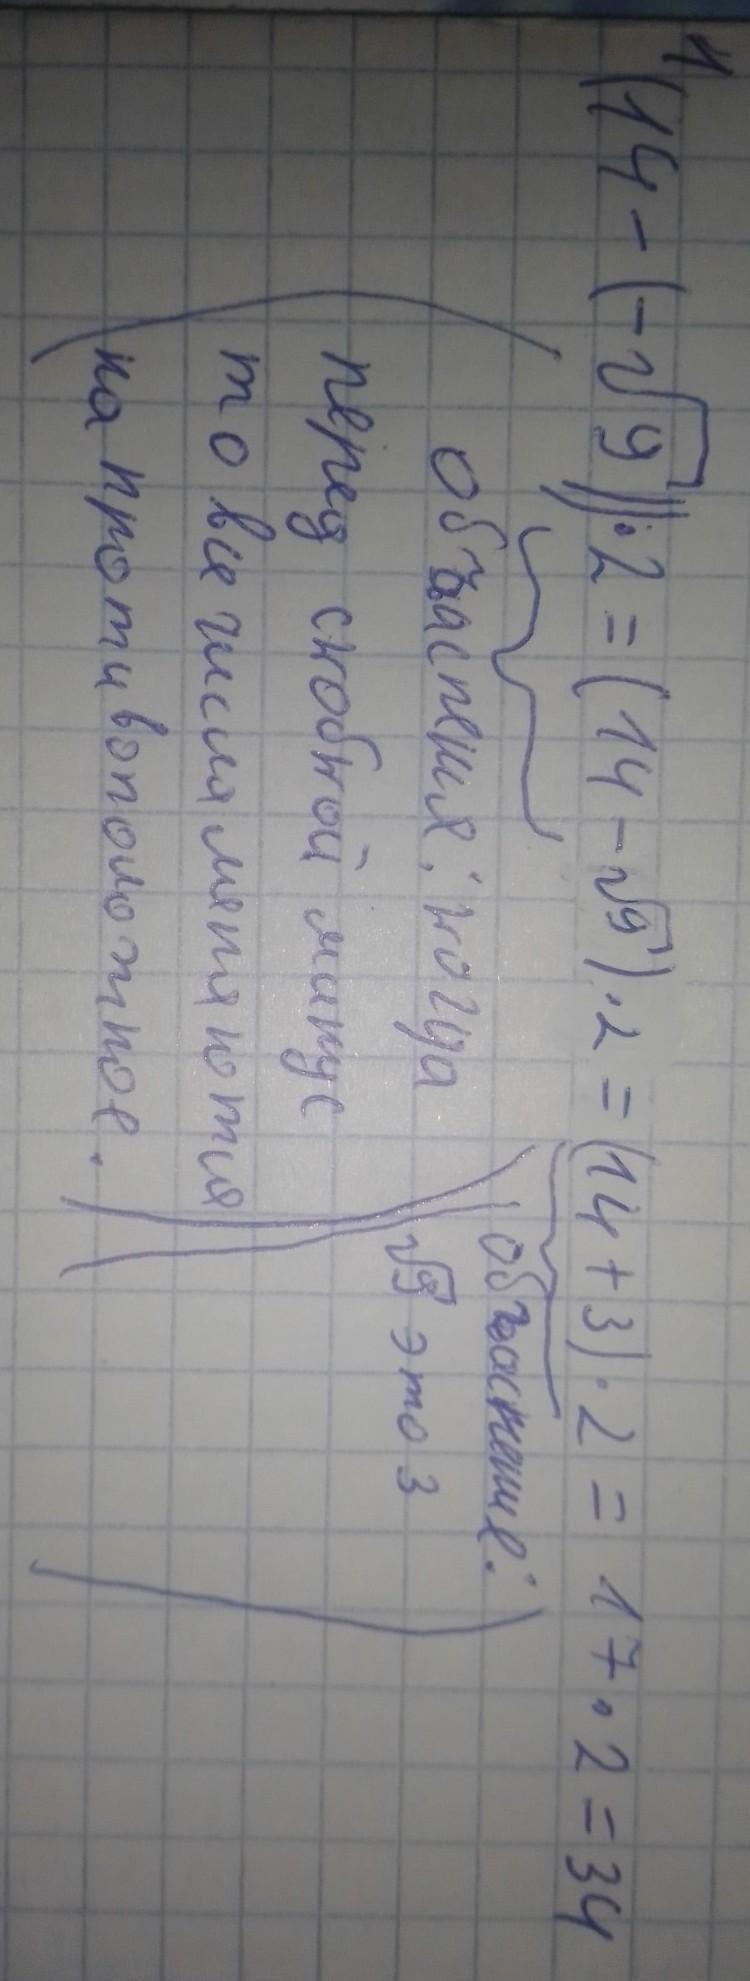 1
(14 - (-√9)) · 2 = (14 - √9) · 2 = (14 + 3) · 2 = 17 · 2 = 34
(объяснения: когда
перед скобкой минус
то все числа меняются
на противоположное.)
(объяснение:
√9 это 3)